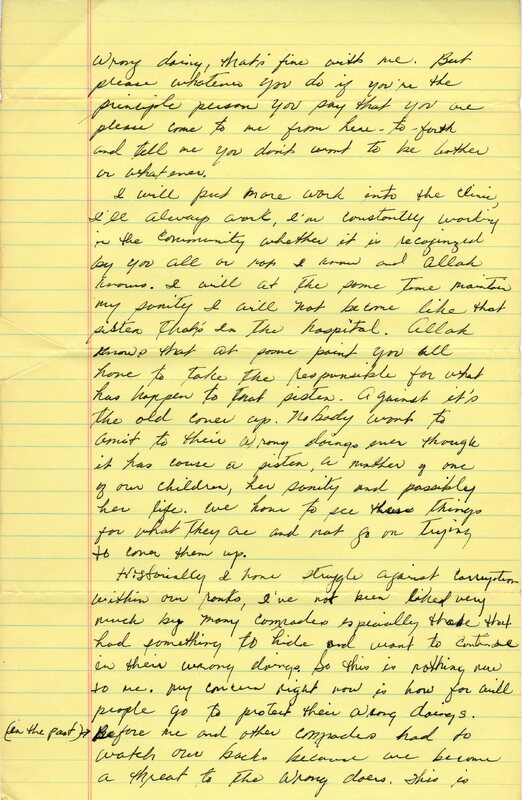 wrong doing, that's fine with me. But
please whatever you do if you're the
principle person you say that you are
please come to me from here-to-forth
and tell me you don't want to be bother
or whatever.
I will put more work into the clinic,
I'll always work, I'm constantly working
in the community whether it is recoginzed
by you all or not I know and Allah
knows. I will at the same time maintain
my sanity I will not become like that
sister that's in the hospital. Allah
knows that at some point you all
have to take the responsible for what
has happen to that sister. Against it's
the old cover up. Nobody want to
amit to their wrong doings even though
it has cause a sister, a mother of one
of our children, her sanity and possibly
her life. We have to see these things
for what they are and not go on trying
to cover them up.
Historially I have struggle against corruption
within our ranks, I've not been liked very
much by many comrades espicially those that
had something to hide and want to continue
in their wrong doings. So this is nothing new
to me. My concern right now is how far will
people go to protect their wrong doings.
(in the past) Before me and other comrades had to
watch our backs because we become
a threat to the wrong doers. This is